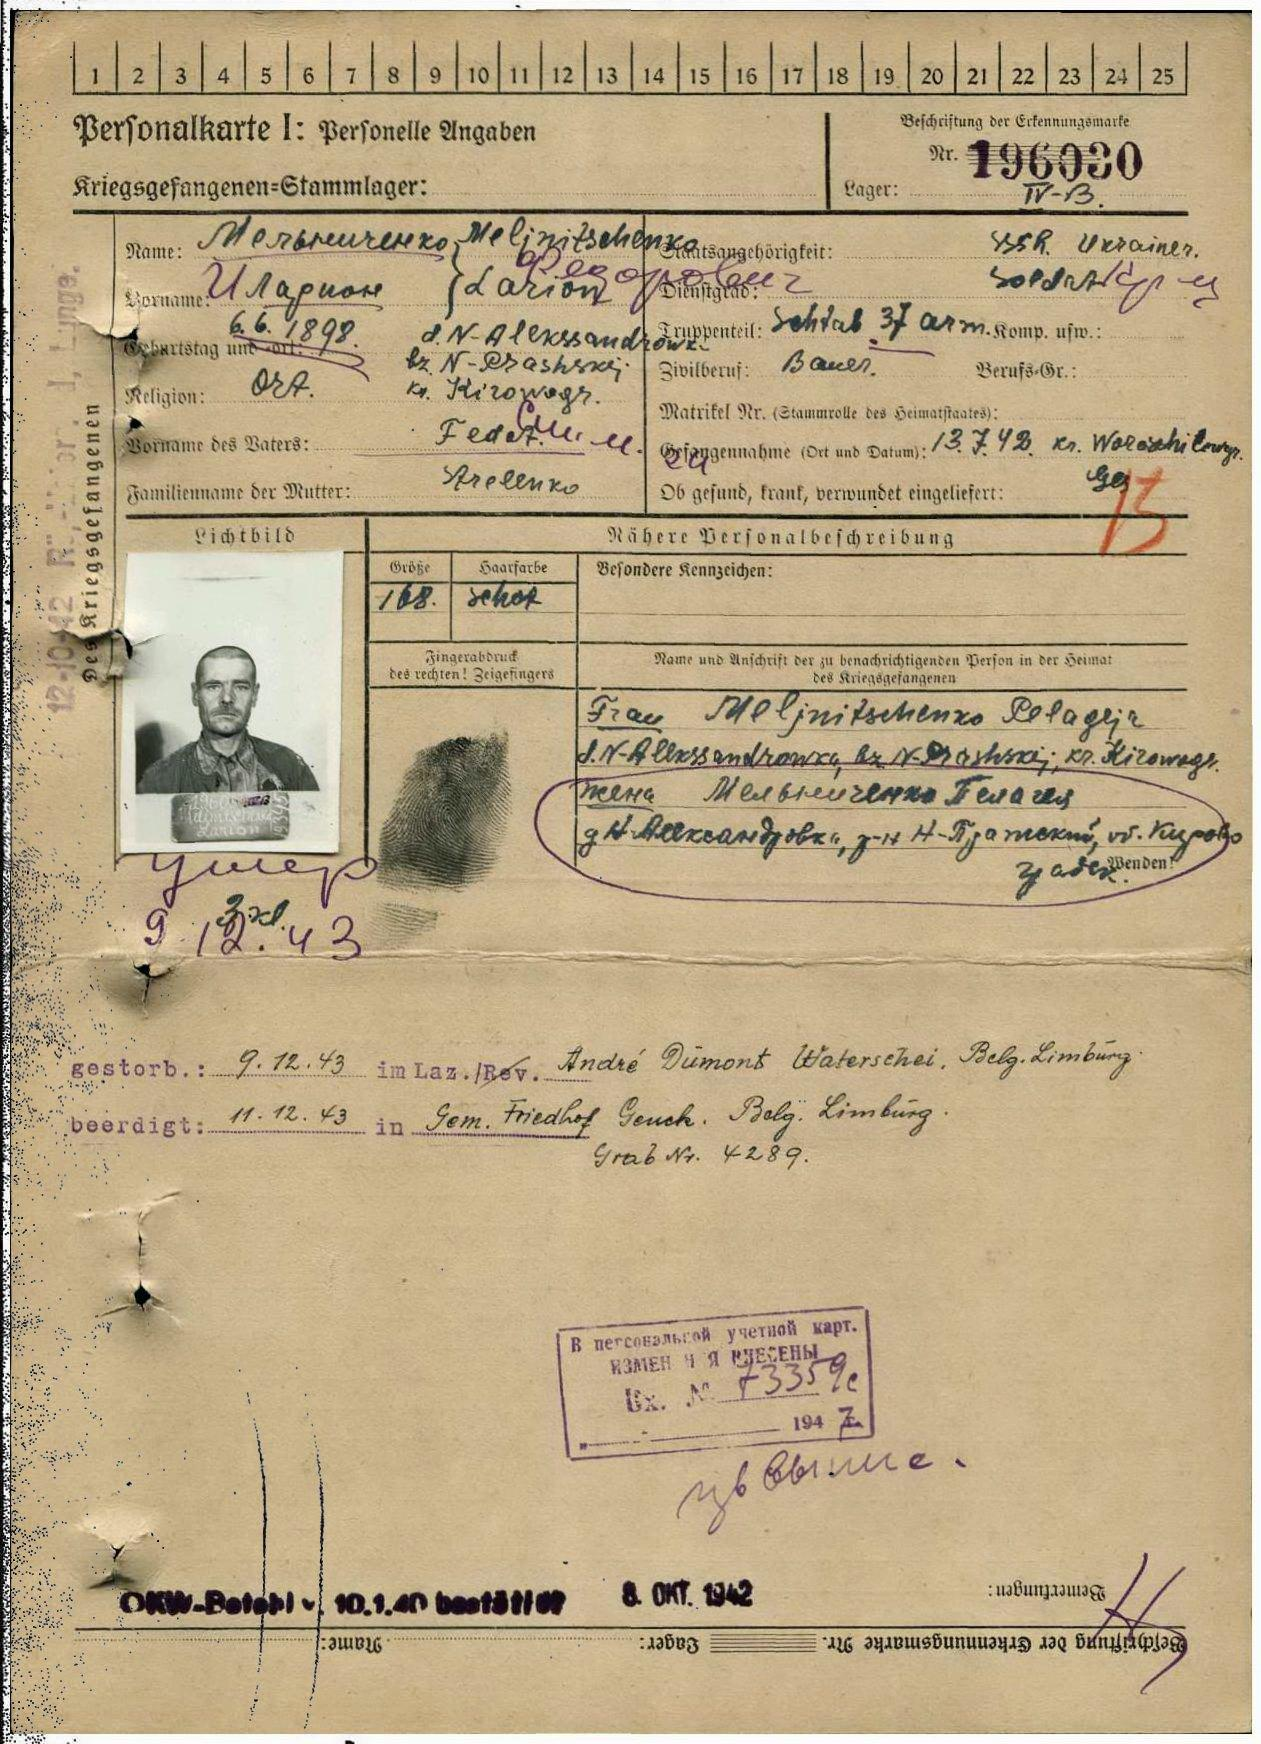 1 2 3 4 5 6 7 8 9 10 11 12 13 14 15 16 17 18 19 20 21 22 23 24 25
Personalkarte I: Personelle Angaben
Kriegsgefangenen=Stammlager:
Beschriftung der Erkennungsmarke
Nr. 196030
Lager: IV-B.
Name: Мельниченко Meljnitschenko
Vorname: Иларион Larion Федорович
Geburtstag und -ort: 6.6.1898. d. N-Alekssandrowk.
bz. N-Prashskej
kr. Kirowogr.
Religion: Ort.
Vorname des Vaters: Fedot.
Familienname der Mutter: Strelenko
Staatsangehörigkeit: SSR. Ukrainer.
Dienstgrad: Soldat
Truppenteil: Schtab 37 arm. Komp. usw.:
Zivilberuf: Bauer. Berufs-Gr.:
Matrikel Nr. (Stammrolle des Heimatstaates):
Gefangennahme (Ort und Datum): 13.7.42. kr. Woroschilowgr.
Ob gesund, krank, verwundet eingeliefert: Ges
Des Kriegsgefangenen
12-10-42
Lichtbild
Nähere Personalbeschreibung
Größe
168.
Haarfarbe
schat
Besondere Kennzeichen:
Fingerabdruck
des rechten! Zeigefingers
Name und Anschrift der zu benachrichtigenden Person in der Heimat
des Kriegsgefangenen
Frau Meljnitschenko Pelageja
d. N-Alekssandrowka, bz. N-Prashskej, kr. Kirowogr.
жена Мельниченко Пелагея
д Н-Александровка, р-н Н-Пражский, об. Кирово
град.
Wenden!
Larion
умер
9.12.43
gestorb.: 9.12.43 im Laz./Rev. André Dümont Waterschei. Belg. Limbürg.
beerdigt: 11.12.43 in Gem. Friedhof Genck. Belg. Limbürg.
Grab Nr. 4289.
В персональной учетной карт.
ИЗМЕНЕНИЯ ВНЕСЕНЫ
Вх. № 73359с
1947
OKW-Befehl v. 10.1.40 bestätigt 8. OKT. 1942
Bemerkungen:
Beschriftung der Erkennungsmarke Nr. Lager: Name: